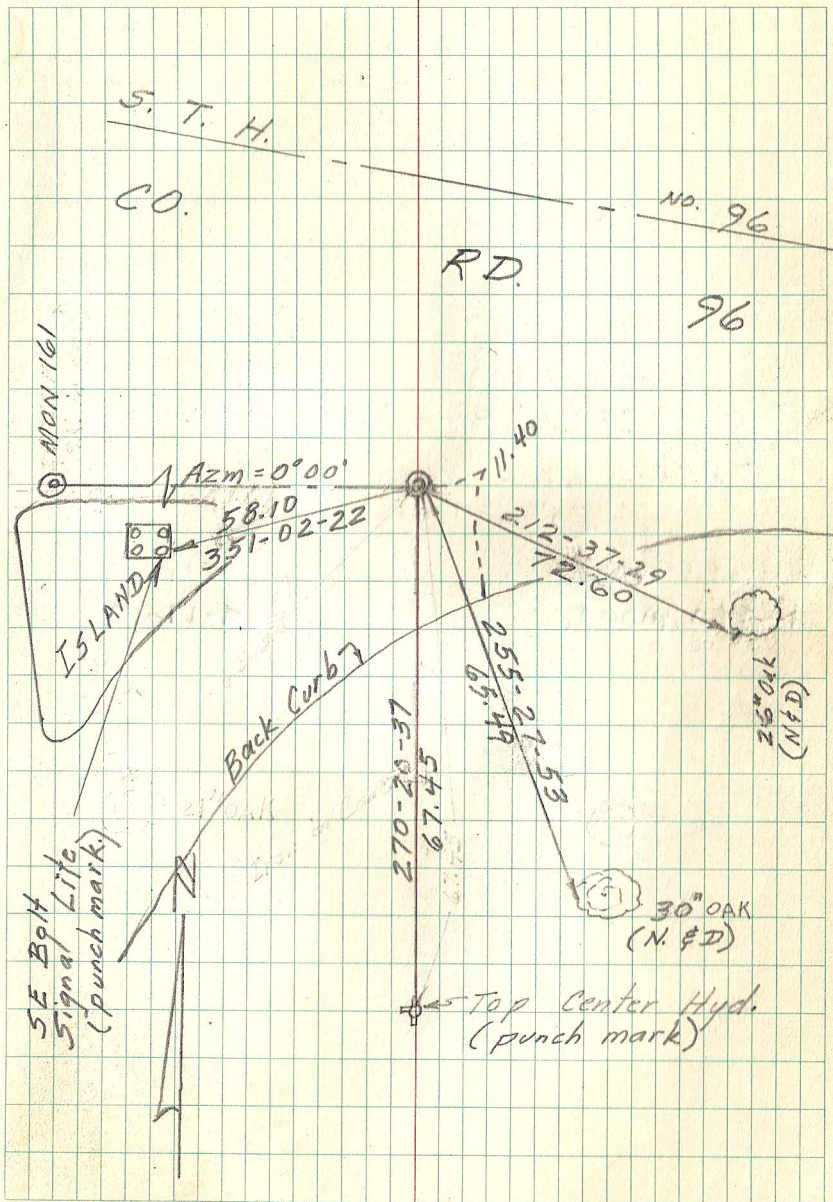 S. T. H.
NO. 96
CO.
RD.
96
MON 161
Azm = 0°00'
11.40
58.10
351-02-22
212-37-29
72.60
ISLAND
Back Curb
255-27-53
65.49
270-20-37
67.45
26" Oak
(N&D)
30" OAK
(N. & D)
SE Bolt
Signal Lite
(punch mark)
Top Center Hyd.
(punch mark)